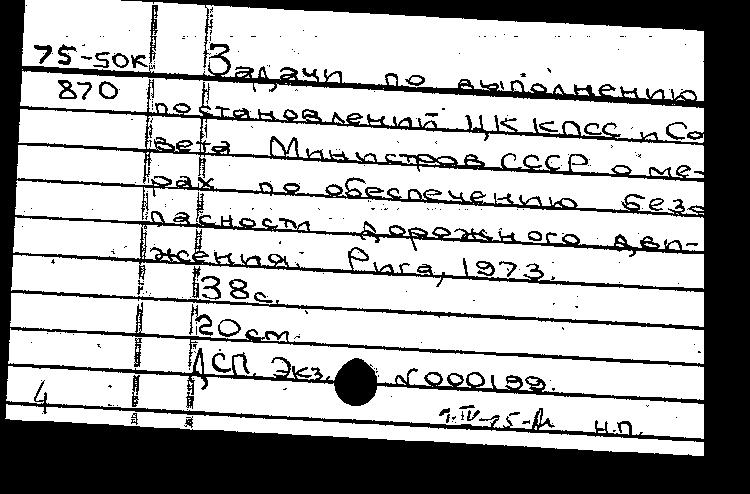 75-50к Задачи по выполнению
870 постановлений ЦК КПСС и Со
вета Министров СССР о ме-
рах по обеспечению безо
пасности дорожного дви-
жения. Рига, 1973.
38с.
20см.
ДСП. Экз. N000199.
4 н.п.